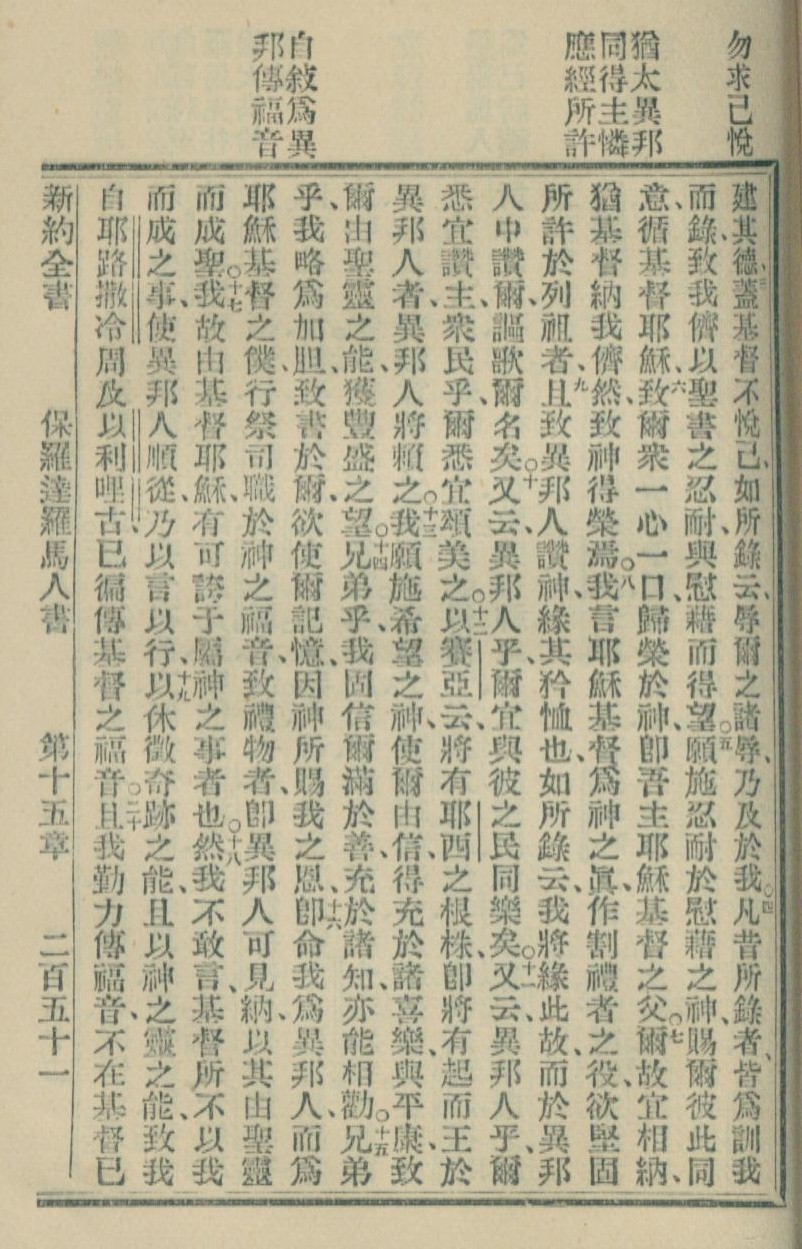 勿求己悅
猶太異邦
同得主憐
應經所許
自敍爲異
邦傳福音
建其德、三蓋基督不悅己、如所錄云、辱爾之諸辱、乃及於我。四凡昔所錄者、皆爲訓我
而錄、致我儕以聖書之忍耐、與慰藉而得望。五願施忍耐於慰藉之神、賜爾彼此同
意、循基督耶穌、六致爾衆一心一口、歸榮於神、卽吾主耶穌基督之父。七爾故宜相納、
猶基督納我儕然、致神得榮焉。八我言耶穌基督爲神之眞、作割禮者之役、欲堅固
所許於列祖者、九且致異邦人讚神、緣其矜恤也、如所錄云、我將緣此故、而於異邦
人中讚爾、謳歌爾名矣。十又云、異邦人乎、爾宜與彼之民同樂矣。十一又云、異邦人乎、爾
悉宜讚主、衆民乎、爾悉宜頌美之。十二以賽亞云、將有耶西之根株、卽將有起而王於
異邦人者、異邦人將賴之。十三我願施希望之神、使爾由信、得充於諸喜樂、與平康、致
爾由聖靈之能、獲豐盛之望。十四兄弟乎、我固信爾滿於善、充於諸知、亦能相勸。十五兄弟
乎、我略爲加胆、致書於爾、欲使爾記憶、因神所賜我之恩、十六卽命我爲異邦人、而爲
耶穌基督之僕、行祭司職於神之福音、致禮物者、卽異邦人可見納、以其由聖靈
而成聖。十七我故由基督耶穌、有可誇于屬神之事者也。十八然我不敢言、基督所不以我
而成之事、使異邦人順從、乃以言以行、十九以休徵奇跡之能、且以神之靈之能、致我
自耶路撒冷周及以利哩古、已徧傳基督之福音。二十且我勤力傳福音、不在基督已
新約全書 保羅達羅馬人書 第十五章 二百五十一